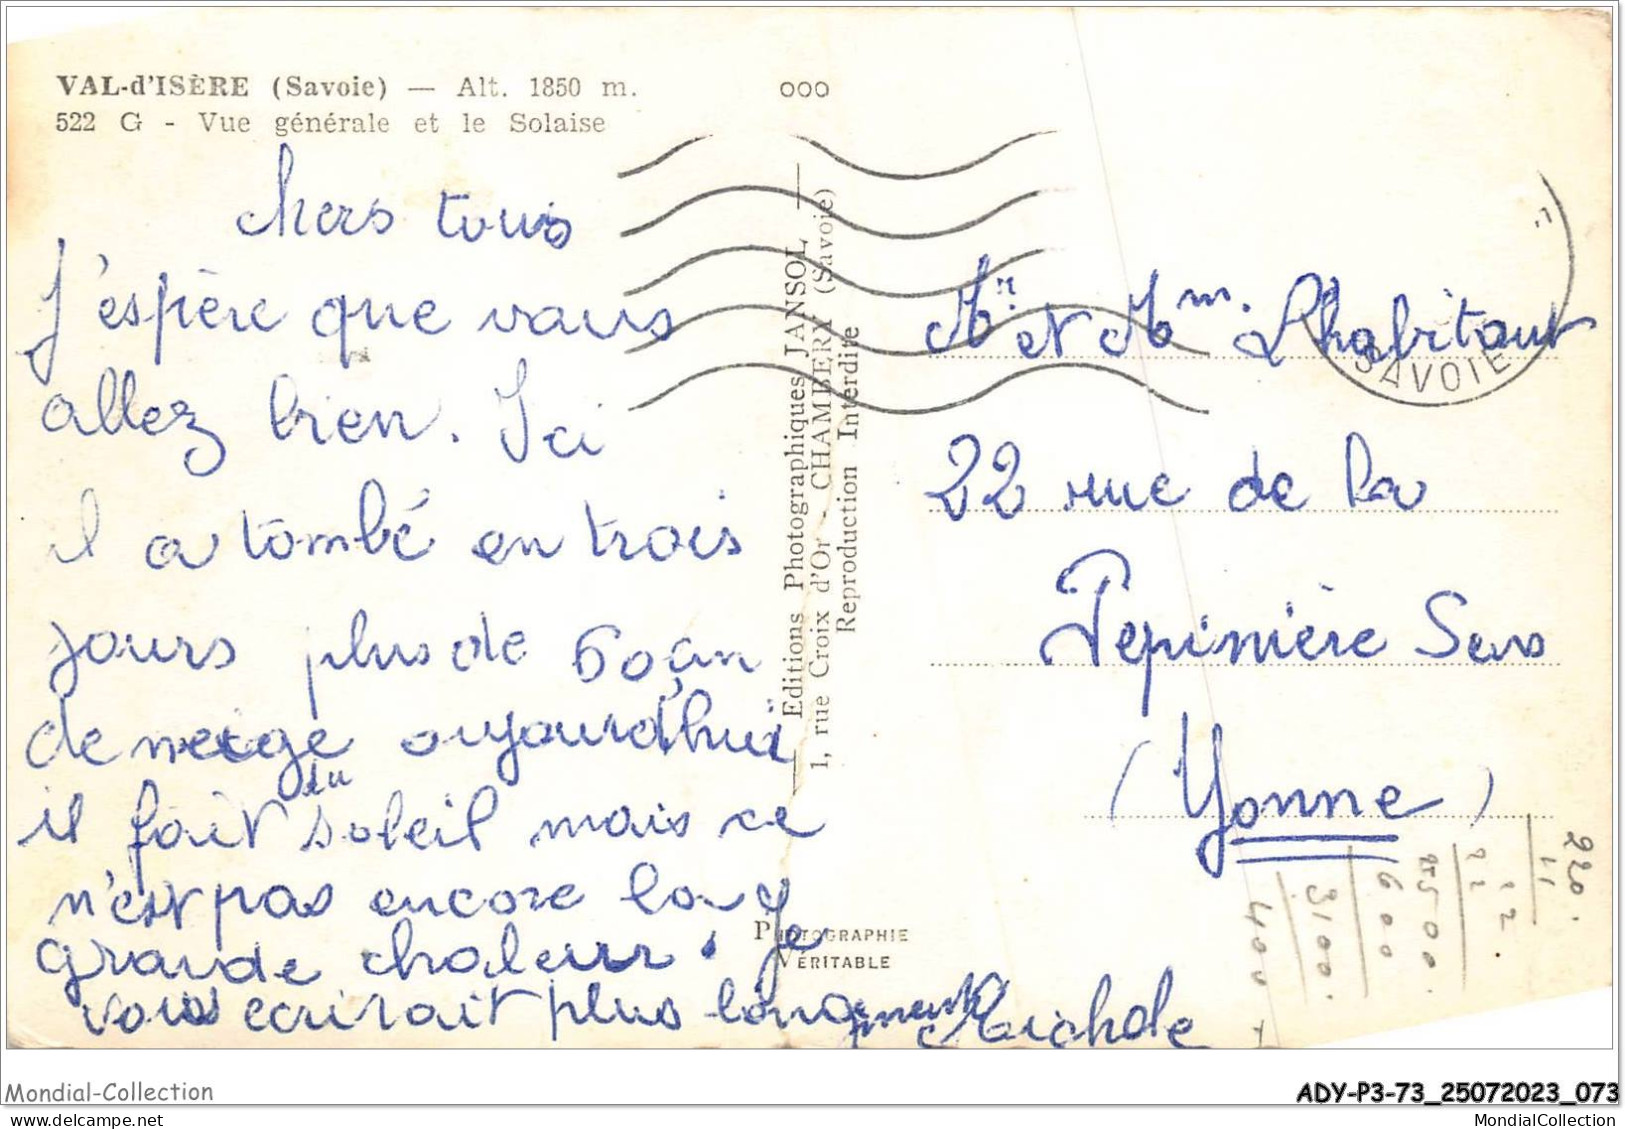 VAL-d'ISÈRE (Savoie) — Alt. 1850 m.
522 G - Vue générale et le Solaise
000
chers tous
J'espère que vous
allez bien. Ici
il a tombé en trois
jours plus de 60 çm
de neige aujourd'hui
il fait du soleil mais ce
n'est pas encore la
grande chaleur. Je
vous ecrirait plus longuement
Michèle
Editions Photographiques JANSOL
1, rue Croix d'Or - CHAMBERY (Savoie)
Reproduction Interdite
PHOTOGRAPHIE
VÉRITABLE
SAVOIE
Mr et Mm. Lhabitant
22 rue de la
Pepinière Sens
(Yonne)
220.
11
22
6000
3100.
400
Mondial-Collection
ADY-P3-73_25072023_073
MondialCollection